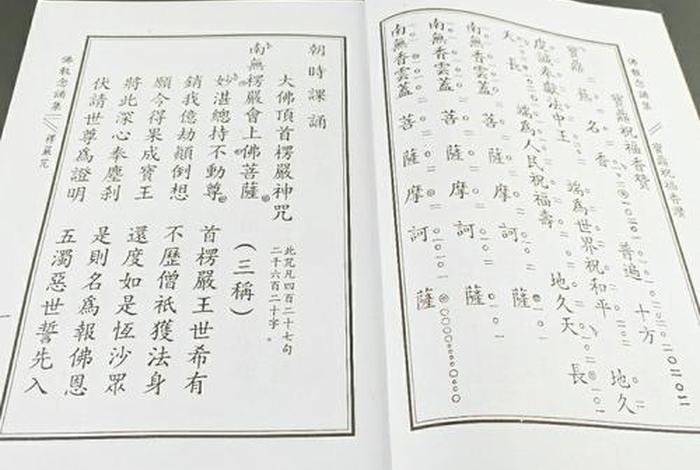 佛教念誦集 寶鼎祝福香讚
寶鼎祝福香讚
寶鼎 爇 名 香 普遍 十方
虔誠奉獻法中王 端為世界祝和平 地久
天長 端為人民祝福壽 地久天長
南無香雲蓋菩薩摩訶薩
南無香雲蓋菩薩摩訶薩
南無香雲蓋菩薩摩訶薩
朝時課誦
大佛頂首楞嚴神咒 此咒凡四百二十七句
二千六百二十字。
南無楞嚴會上佛菩薩 (三稱)
妙湛總持不動尊 首楞嚴王世希有
銷我億劫顛倒想 不歷僧祇獲法身
願今得果成寶王 還度如是恆沙眾
將此深心奉塵剎 是則名為報佛恩
伏請世尊為證明 五濁惡世誓先入
佛教念誦集 楞嚴咒
一